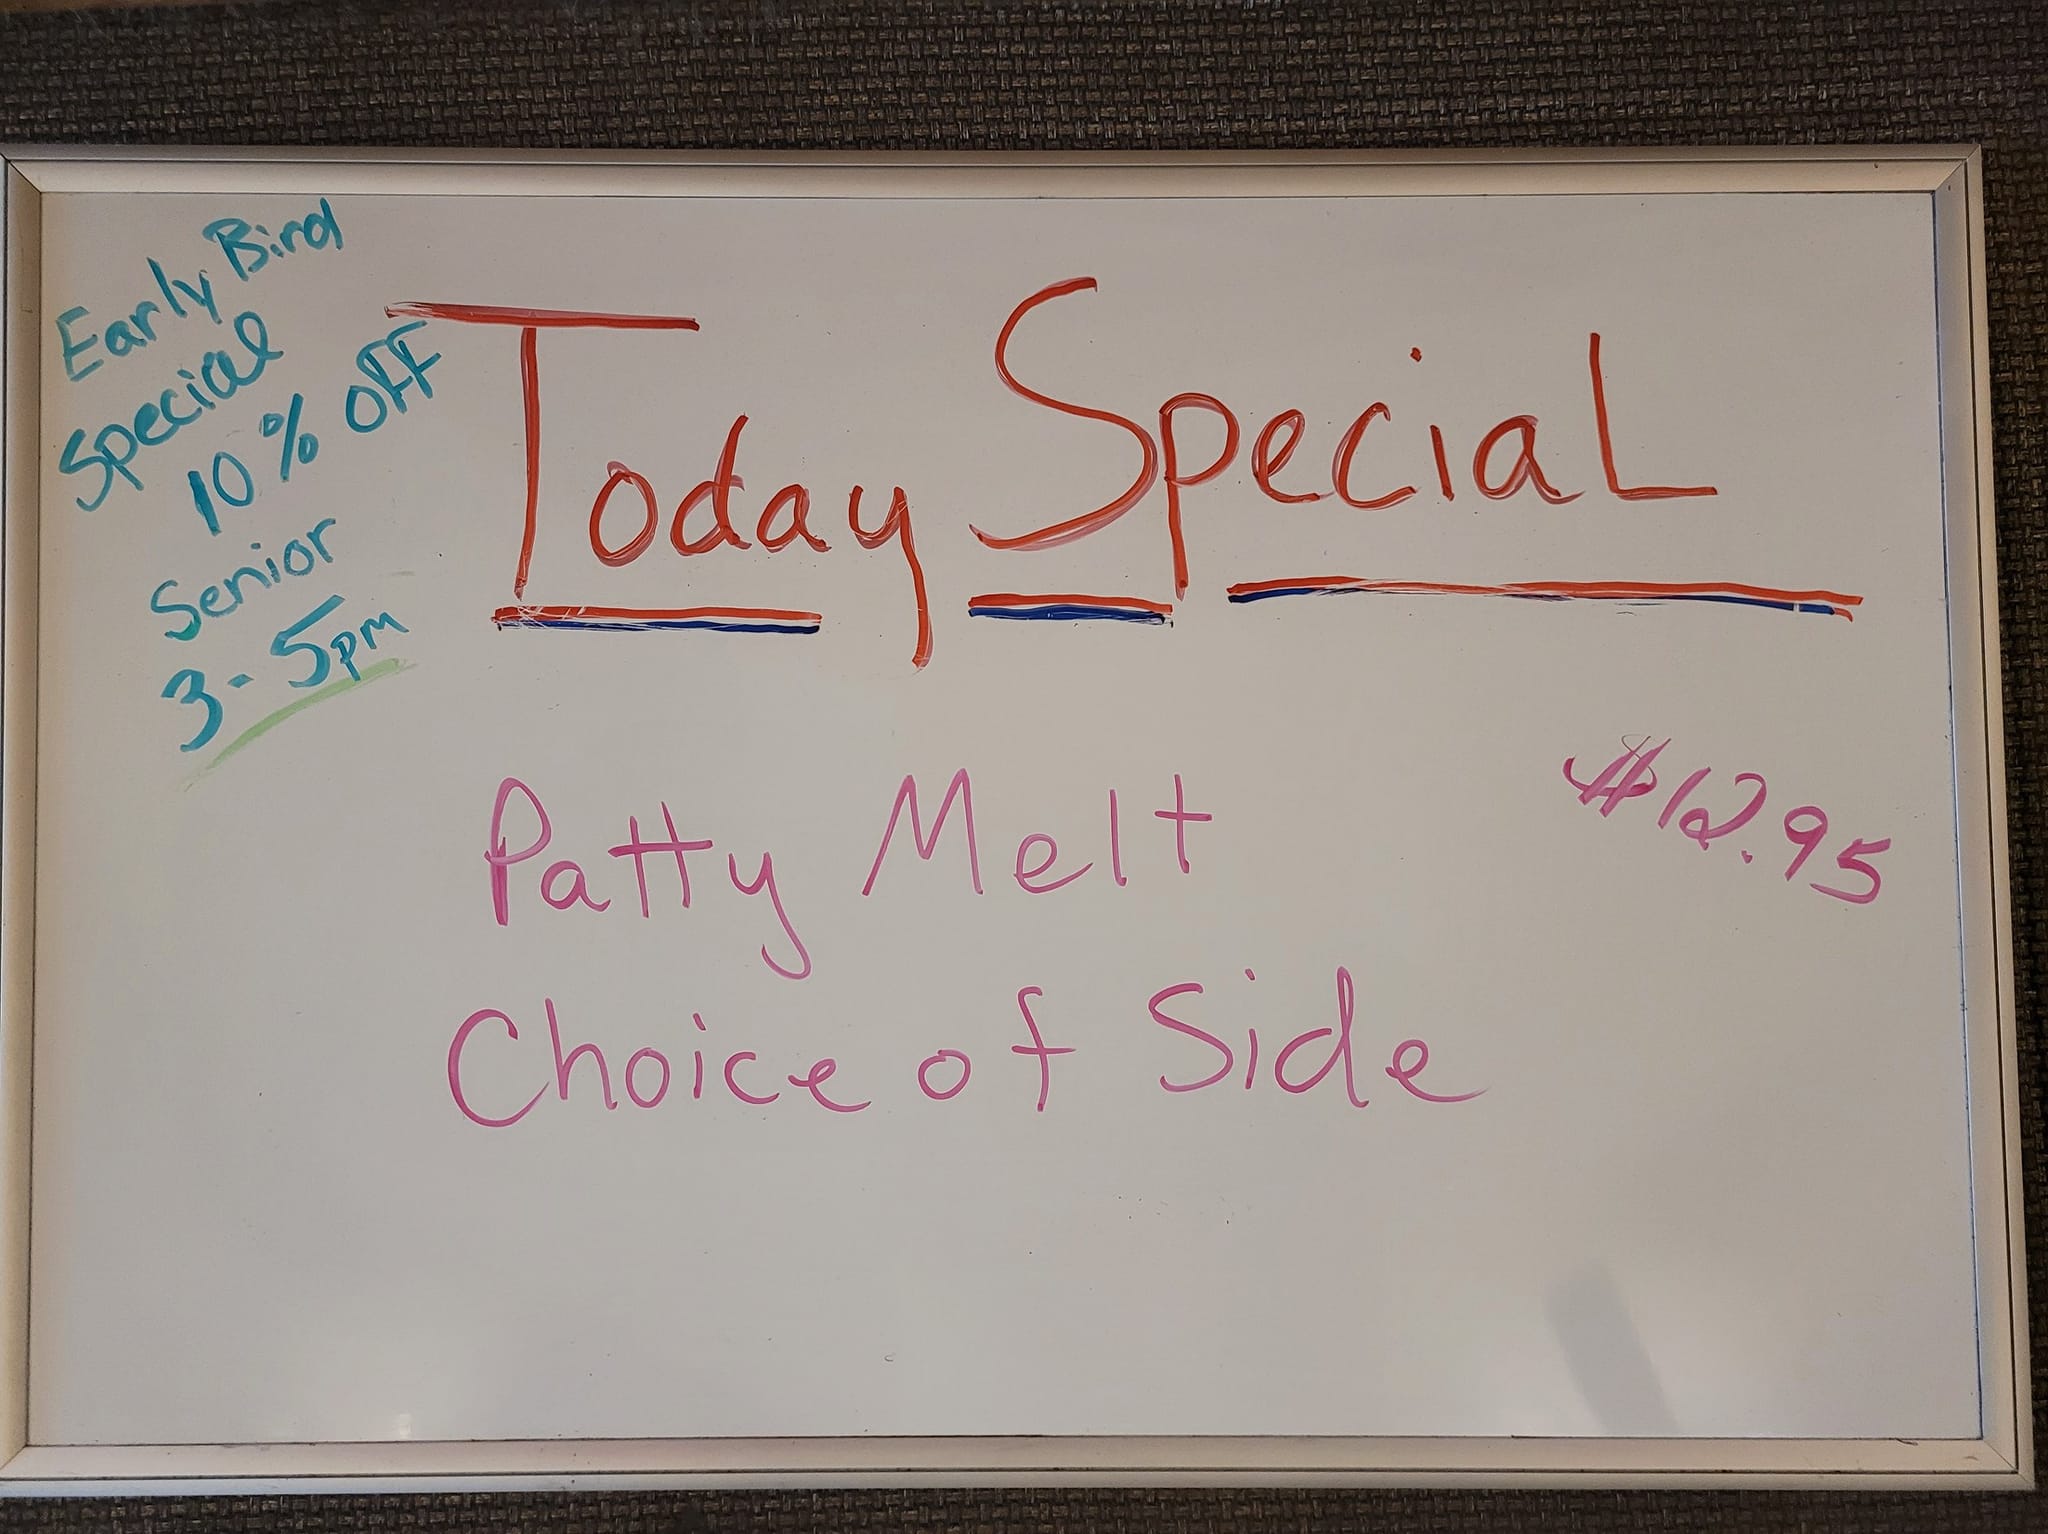 Early Bird
Special
10% OFF
Senior
3-5pm
Today Special
Patty Melt
$12.95
Choice of Side